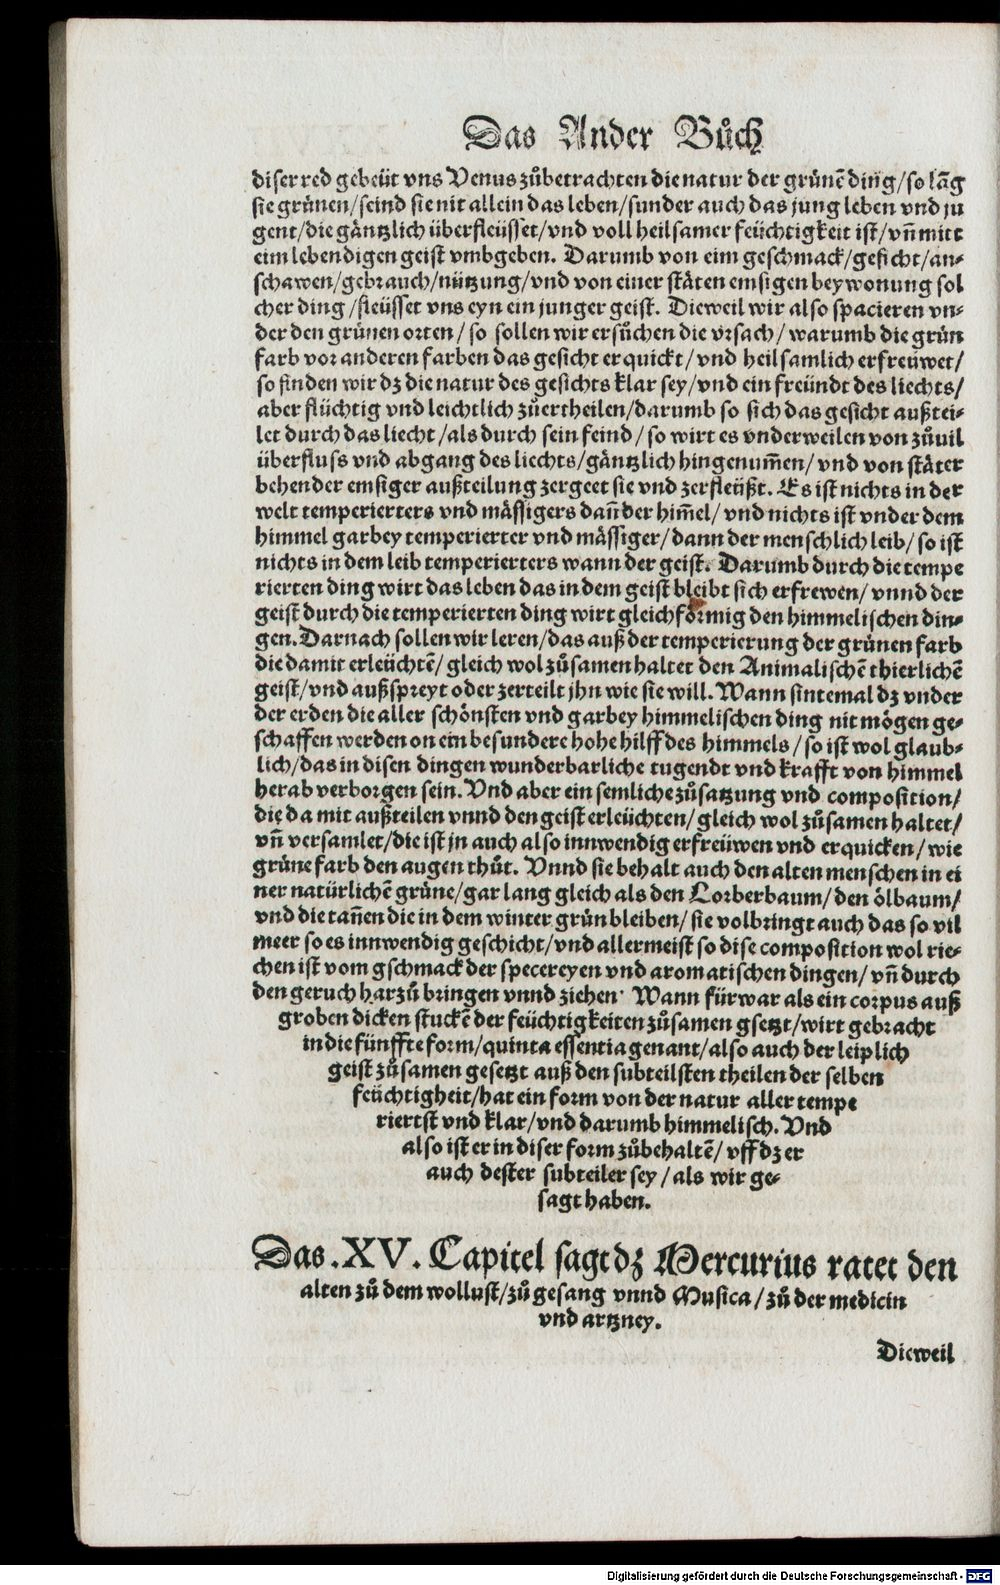 Das Ander Bůch
diser red gebeüt vns Venus zůbetrachten die natur der grůnē ding/so lāg
sie grůnen/seind sie nit allein das leben/sunder auch das jung leben vnd ju
gent/die gäntzlich überfleüsset/vnd voll heilsamer feüchtigkeit ist/vn̄ mitt
eim lebendigen geist vmbgeben. Darumb von eim geschmack/gesicht/an-
schawen/gebrauch/nützung/vnd von einer stäten emsigen beywonung sol
cher ding/fleüsset vns eyn ein junger geist. Dieweil wir also spacieren vn-
der den grůnen orten/so sollen wir ersůchen die vrsach/warumb die grůn
farb vor anderen farben das gesicht erquickt/vnd heilsamlich erfreüwet/
so finden wir dz die natur des gesichts klar sey/vnd ein freündt des liechts/
aber flüchtig vnd leichtlich zůertheilen/darumb so sich das gesicht außtei-
let durch das liecht/als durch sein feind/so wirt es vnderweilen von zůuil
überfluss vnd abgang des liechts/gäntzlich hingenum̄en/vnd von stäter
behender emsiger außteilung zergeet sie vnd zerfleüßt. Es ist nichts in der
welt temperierters vnd mässigers dan̄ der him̄el/vnd nichts ist vnder dem
himmel garbey temperierter vnd mässiger/dann der menschlich leib/so ist
nichts in dem leib temperierters wann der geist. Darumb durch die tempe
rierten ding wirt das leben das in dem geist bleibt sich erfrewen/vnnd der
geist durch die temperierten ding wirt gleichförmig den himmelischen din-
gen. Darnach sollen wir leren/das auß der temperierung der grůnen farb
die damit erleüchtē/gleich wol zůsamen haltet den Animalischē thierlichē
geist/vnd außspreyt oder zerteilt jhn wie sie will. Wann sintemal dz vnder
der erden die aller schönsten vnd garbey himmelischen ding nit mögen ge-
schaffen werden on ein besundere hohe hilff des himmels/so ist wol glaub-
lich/das in disen dingen wunderbarliche tugendt vnd krafft von himmel
herab verborgen sein. Vnd aber ein semliche zůsatzung vnd composition/
die da mit außteilen vnnd den geist erleüchten/gleich wol zůsamen haltet/
vn̄ versamlet/die ist jn auch also innwendig erfreüwen vnd erquicken/wie
grůne farb den augen thůt. Vnnd sie behalt auch den alten menschen in ei
ner natürlichē grůne/gar lang gleich als den Lorberbaum/den ölbaum/
vnd die tan̄en die in dem winter grůn bleiben/sie volbringt auch das so vil
meer so es innwendig geschicht/vnd allermeist so dise composition wol rie-
chen ist vom gschmack der specereyen vnd aromatischen dingen/vn̄ durch
den geruch harzů bringen vnnd ziehen. Wann fürwar als ein corpus auß
groben dicken stuckē der feüchtigkeiten zůsamen gsetzt/wirt gebracht
in die fünffte form/quinta essentia genant/also auch der leiplich
geist zůsamen gesetzt auß den subteilsten theilen der selben
feüchtigheit/hat ein form von der natur aller tempe
riertst vnd klar/vnd darumb himmelisch. Vnd
also ist er in diser form zůbehaltē/vff dz er
auch dester subteiler sey/als wir ge-
sagt haben.
Das .XV. Capitel sagt dz Mercurius ratet den
alten zů dem wollust/zů gesang vnnd Musica/zů der medicin
vnd artzney.
Dieweil
Digitalisierung gefördert durch die Deutsche Forschungsgemeinschaft - DFG